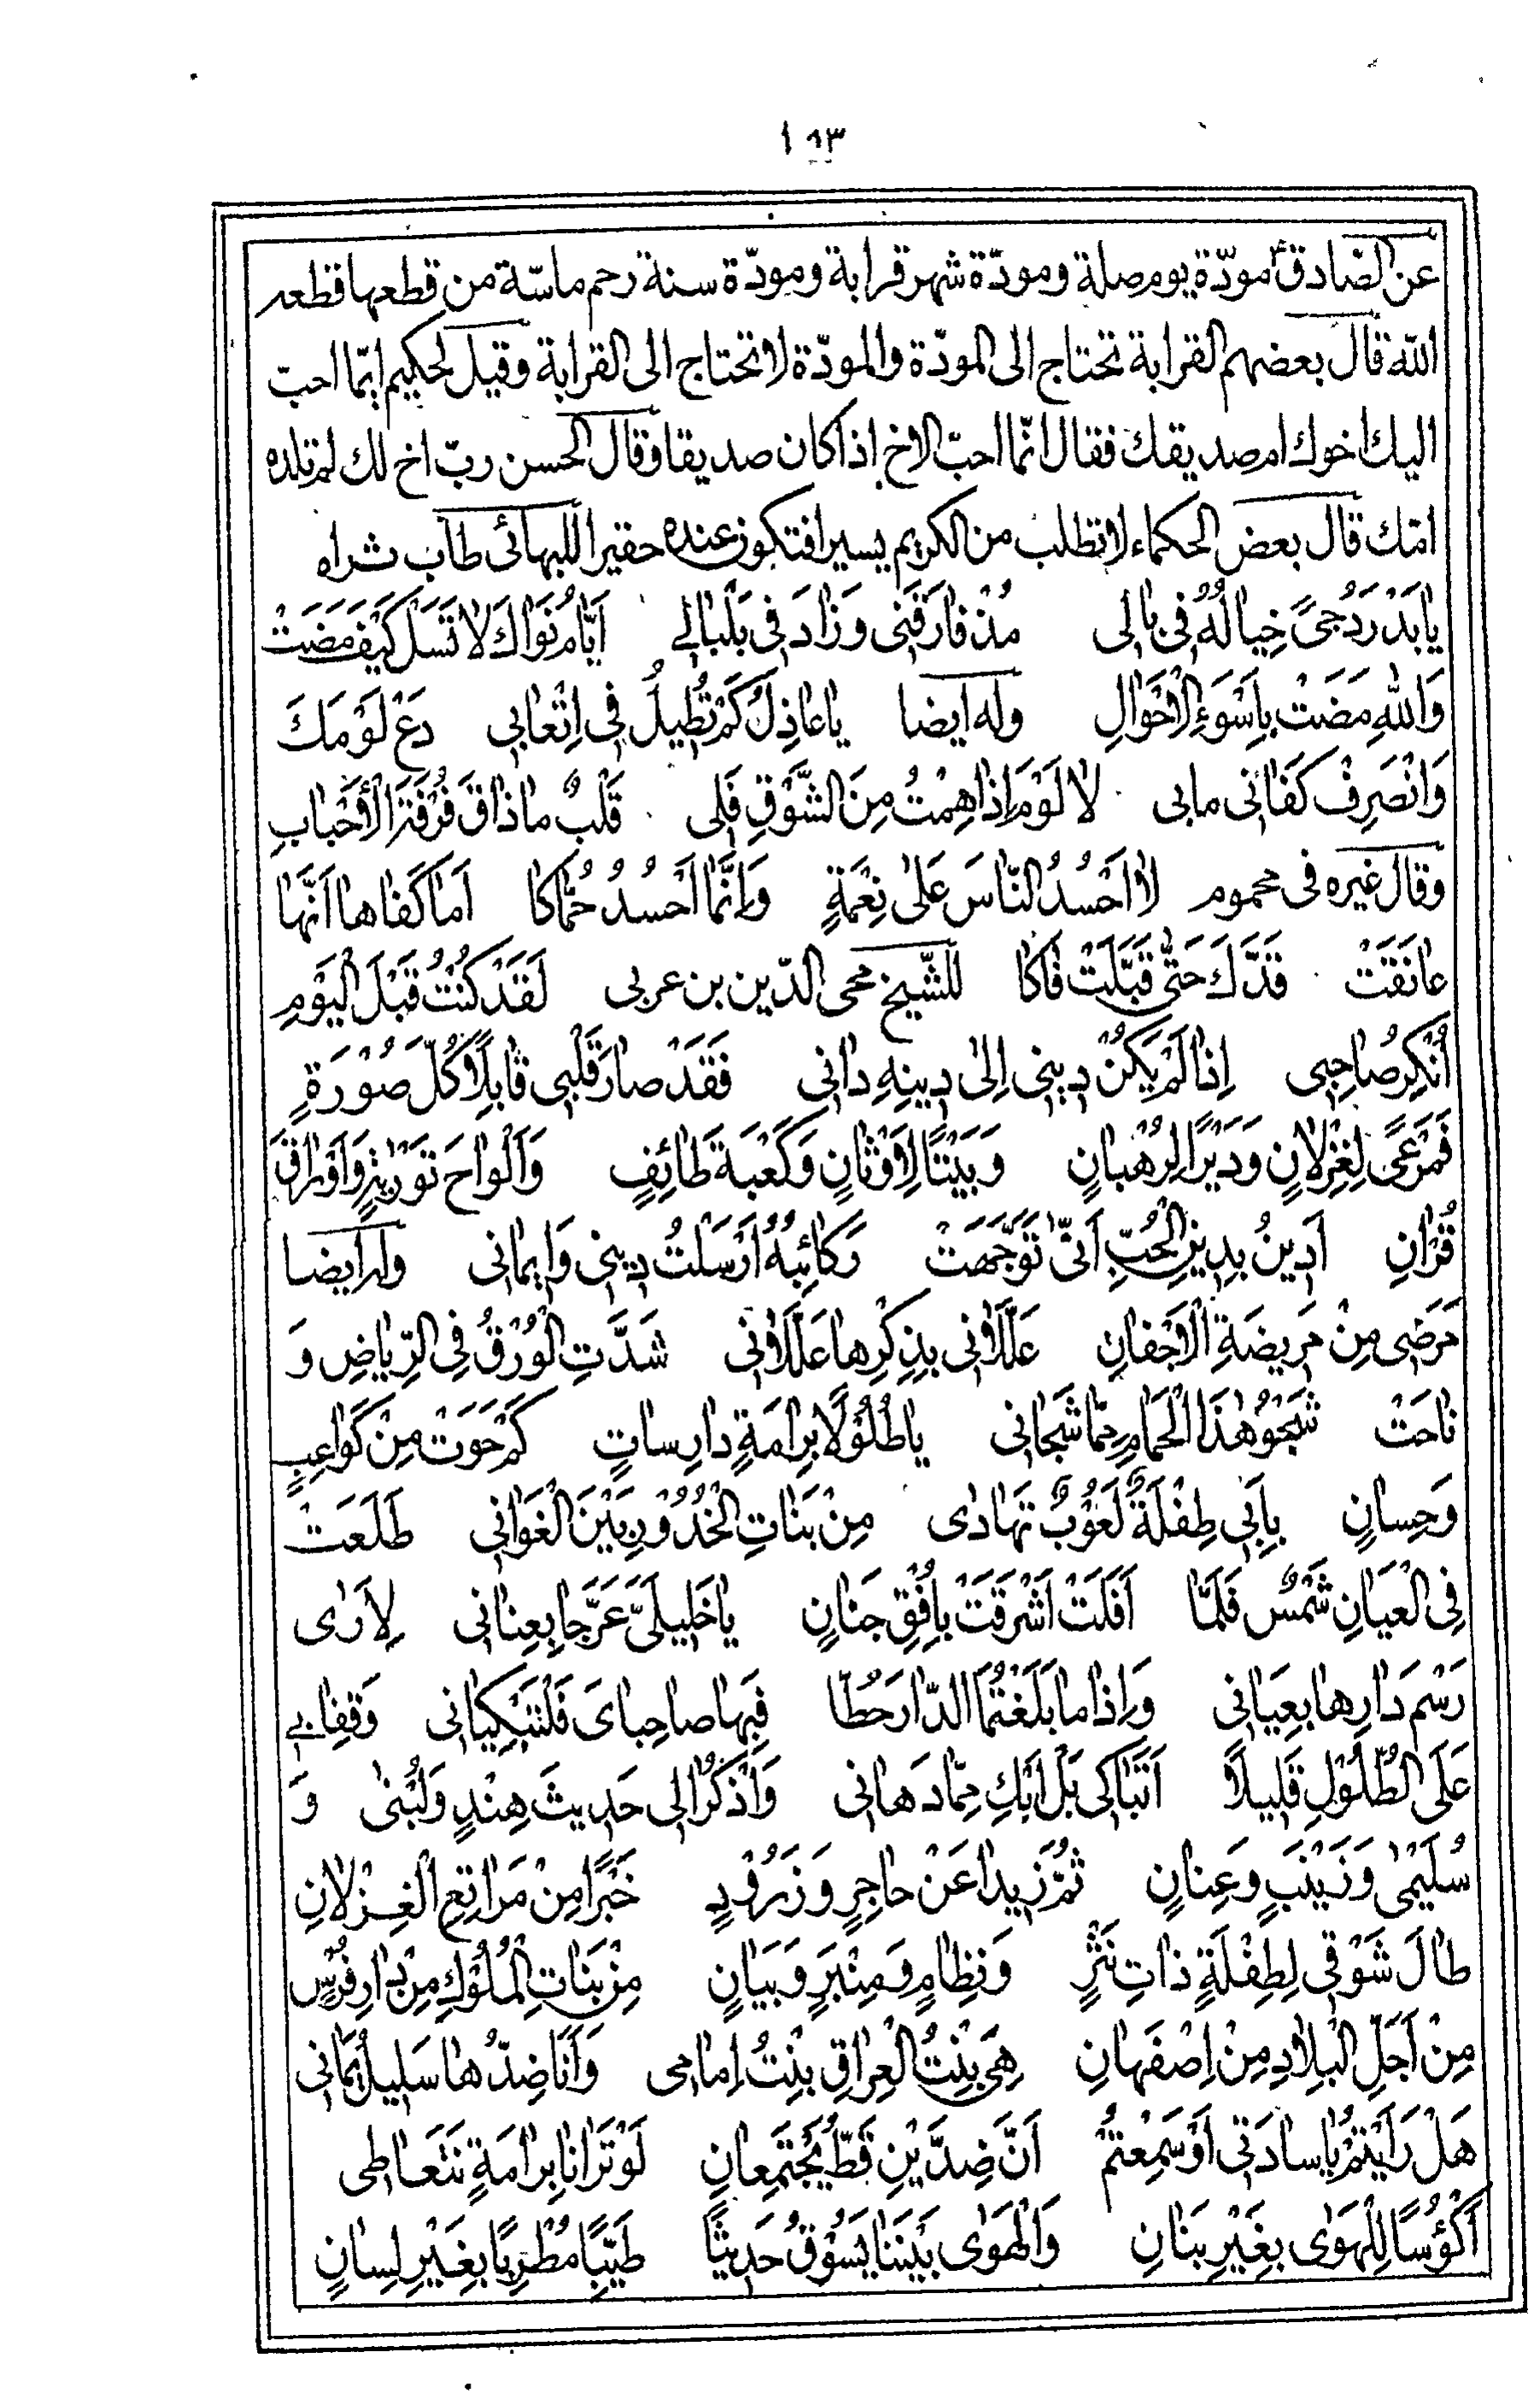 ١٨٣
عن الصادق مودّة يوم صلة ومودّة شهر قرابة ومودّة سنة رحم ماسّة من قطعها قطعه
الله قال بعضهم القرابة تحتاج الى المودّة والمودّة لا تحتاج الى القرابة وقيل لحكيم ايّما احبّ
اليك اخوك ام صديقك فقال انّما احبّ الاخ اذا كان صديقا وقال الحسن ربّ اخ لك لم تلده
امّك قال بعض الحكماء لا تطلب من الكريم يسيرا فتكون عنده حقيرا للبهائى طاب ثراه
يا بَدْرَ دُجىً خِيالُهُ فى بالى مُذْ فارَقَنى وَزادَ فى بَلْبالى اَيّامُ نَواكَ لا تَسَلْ كَيْفَ مَضَتْ
وَاللهِ مَضَتْ بِاَسْوَءِ الْاَحْوالِ وله ايضا يا عاذِلُ كَمْ تُطيلُ فى اِتْعابى دَعْ لَوْمَكَ
وَانْصَرِفْ كَفانى مابى لا لَوْمَ اِذا هِمْتُ مِنَ الشَّوْقِ فَلى قَلْبٌ ما ذاقَ فُرْقَةَ الْاَحْبابِ
وقال غيره فى محموم لا اَحْسُدُ النّاسَ عَلىٰ نِعْمَةٍ وَاِنَّما اَحْسُدُ حُمّاكا اَما كَفاها اَنَّها
عانَقَتْ قَدَّكَ حَتّى قَبَّلَتْ فاكا للشّيخ محى الدّين بن عربى لَقَدْ كُنْتُ قَبْلَ الْيَوْمِ
اُنْكِرُ صاحِبى اِذا لَمْ يَكُنْ دينى اِلىٰ دينِهِ دانى فَقَدْ صارَ قَلْبى قابِلاً كُلَّ صُورَةٍ
فَمَرْعىً لِغِزْلانٍ وَدَيْرًا لِرُهْبانٍ وَبَيْتًا لِاَوْثانٍ وَكَعْبَةَ طائِفٍ وَاَلْواحَ تَوْرٰيةٍ وَاَوْراقَ
قُرْانِ اَدينُ بِدينِ الْحُبِّ اَنّىٰ تَوَجَّهَتْ رَكائِبُهُ اَرْسَلْتُ دينى وَايمانى وله ايضا
مَرَضى مِنْ مَريضَةِ الْاَجْفانِ عَلِّلانى بِذِكْرِها عَلِّلانى شَدَتِ الْوُرْقُ فِى الرِّياضِ وَ
ناحَتْ شَجْوُ هٰذَا الْحَمامِ مِمّا شَجانى يا طُلُولًا بِرامَةٍ دارِساتٍ كَمْ حَوَتْ مِنْ كَواعِبٍ
وَحِسانٍ بِاَبى طِفْلَةٌ لَعُوْبٌ تَهادى مِنْ بَناتِ الْخُدُوْرِ بَيْنَ الْغَوانى طَلَعَتْ
فِى الْعَيانِ شَمْسٌ فَلَمّا اَفَلَتْ اَشْرَقَتْ بِاُفْقِ جَنانٍ يا خَليلَىَّ عَرِّجا بِعِنانى لِاَرٰى
رَسْمَ دارِها بِعَيانى وَاِذا ما بَلَغْتُمَا الدّارَ حُطّا فَبِها صاحِباىَ فَلْتَبْكِيانى وَقِفا بى
عَلَى الطُّلُوْلِ قَليلاً اَتَباكى بَلْ اَبْكِ مِمّا دَهانى وَاذْكُرا لى حَديثَ هِنْدٍ وَلُبْنىٰ وَ
سُلَيْمىٰ وَزَيْنَبٍ وَعِنانٍ ثُمَّ زيدا عَنْ حاجِرٍ وَزَرُوْدٍ خَبَرًا مِنْ مَراتِعِ الْغِزْلانِ
طالَ شَوْقى لِطِفْلَةٍ ذاتِ نَثْرٍ وَنِظامٍ وَمِنْبَرٍ وَبَيانٍ مِنْ بَناتِ الْمُلُوْكِ مِنْ دارِ فُرْسٍ
مِنْ اَجَلِّ الْبِلادِ مِنْ اِصْفَهانِ هِىَ بِنْتُ الْعِراقِ بِنْتُ اِمامى وَاَنَا ضِدُّها سَليلُ يَمانى
هَلْ رَاَيْتُمْ يا سادَتى اَوْ سَمِعْتُمْ اَنَّ ضِدَّيْنِ قَطُّ يَجْتَمِعانِ لَوْ تَرانا بِرامَةٍ نَتَعاطى
اَكْؤُسًا لِلْهَوٰى بِغَيْرِ بَنانِ وَالْهَوٰى بَيْنَنا يَسُوْقُ حَديثًا طَيِّبًا مُطْرِبًا بِغَيْرِ لِسانٍ